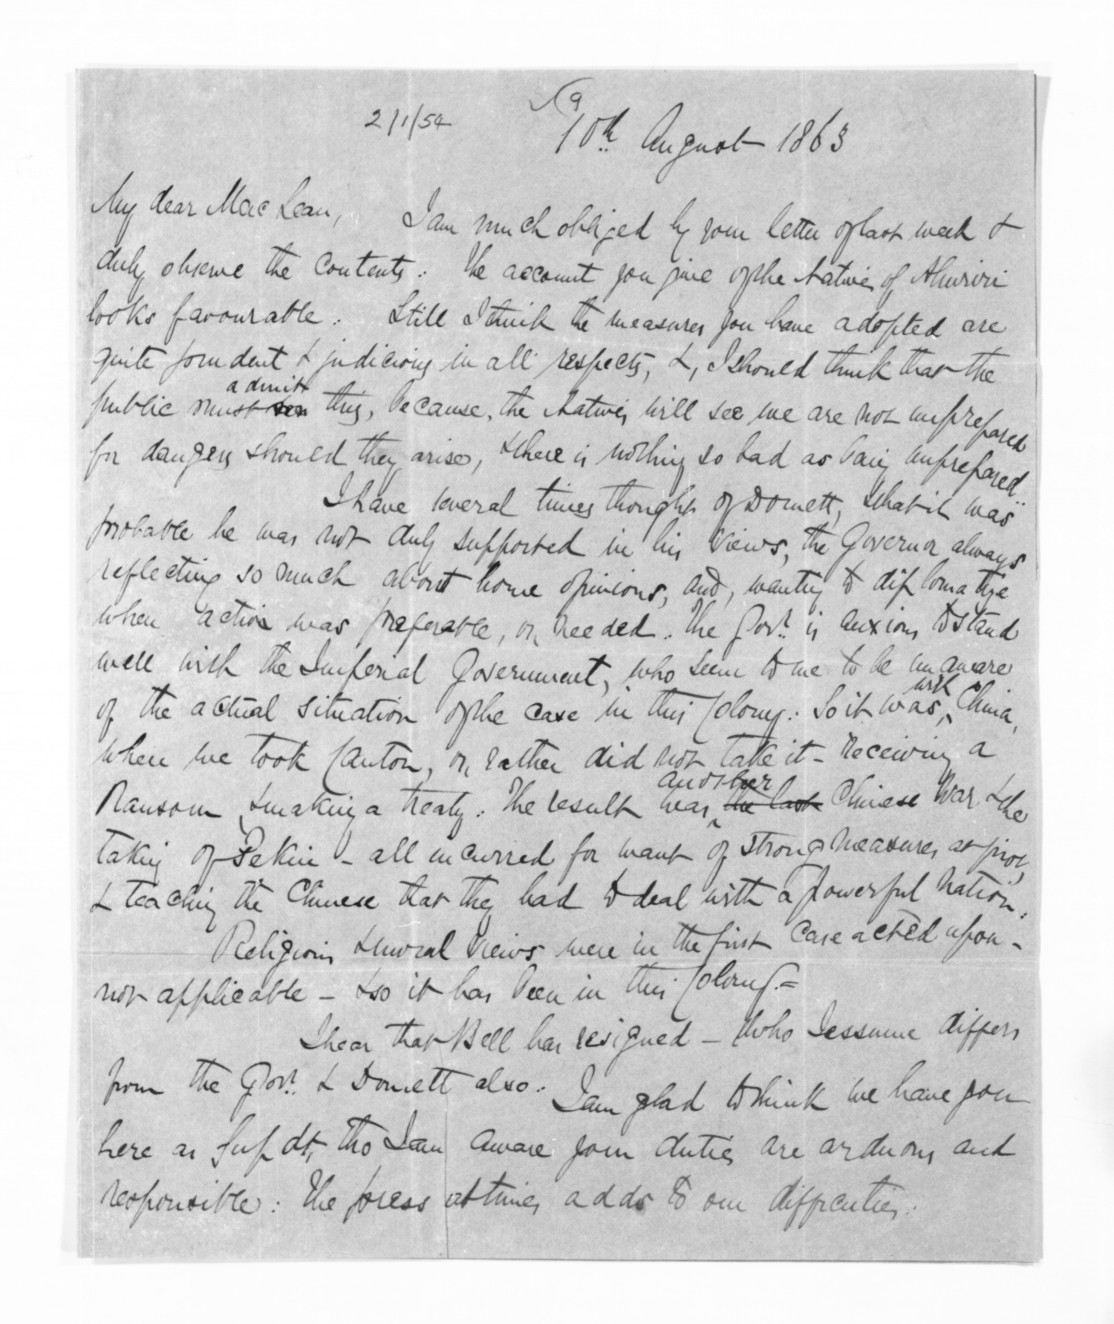 2/1/54
10th August 1863
My dear Mac Lean, I am much obliged by your letter of last week &
duly observe the contents. The account you give of the Natives of Ahuriri
looks favourable. Still I think the measures you have adopted are
quite prudent & judicious in all respects, &, I should think that the
admit
public must this, because, the Natives will see we are not unprepared
for dangers should they arise, & there is nothing so bad as being unprepared.
I have several times thought of Domett, & that it was
probable he was not duly supported in his views, the Governor always
reflecting so much about home opinions, and, wanting to diplomatize
when action was preferable, or, needed. The Govr. is anxious to stand
well with the Imperial Government, who seem to me to be unaware
of the actual situation of the case in this Colony. So it was, with China,
when we took Canton, or, rather did not take it - receiving a
another
Ransom & making a treaty. The result was, the last Chinese War & the
taking of Pekin - all incurred for want of strong measures at first,
& teaching the Chinese that they had to deal with a powerful Nation.
Religious & moral views were in the first case acted upon -
not applicable - & so it has been in this Colony. =
I hear that Bell has resigned - who I assume differs
from the Govr. & Domett also. I am glad to think we have you
here as Supdt, tho I am aware your duties are arduous and
responsible. The press at times adds to our difficulties.